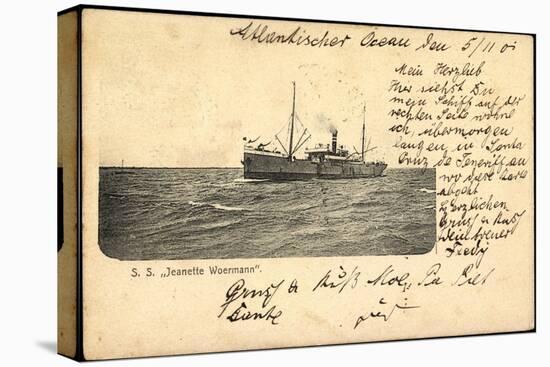 Atlantischer Ocean den 5/11 01
Mein Herzlieb
Hier siehst Du
mein Schiff auf der
rechten Seite wohne
ich, übermorgen
langen in Santa
Cruz de Teneriff an
wo diese Karte
abgeht
Herzlichen
Gruss u Kuss
Dein treuer
Fredy
S. S. „Jeanette Woermann".
Gruss u Kuß
Tante